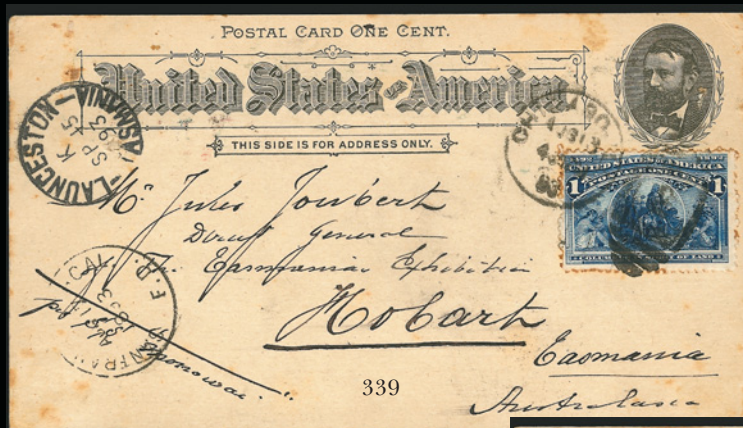 POSTAL CARD ONE CENT.
United States of America
THIS SIDE IS FOR ADDRESS ONLY.
LAUNCESTON-TASMANIA
K
SP 15
93
CHICAGO
1892 1892
UNITED STATES OF AMERICA
POSTAGE ONE CENT
1 1
COLUMBUS IN SIGHT OF LAND
Mr Jules Joubert
Direct General
Tasmanian Exhibition
Hobart
Tasmania
Australasia
SAN FRAN CAL
per Monowai
339